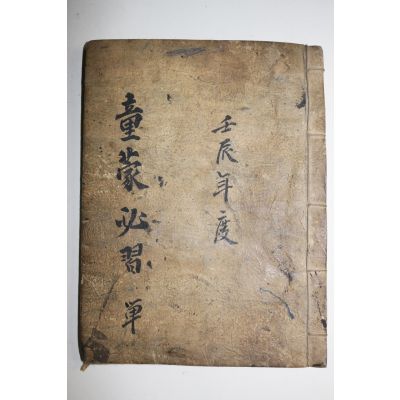 壬辰年度
童蒙必習 単